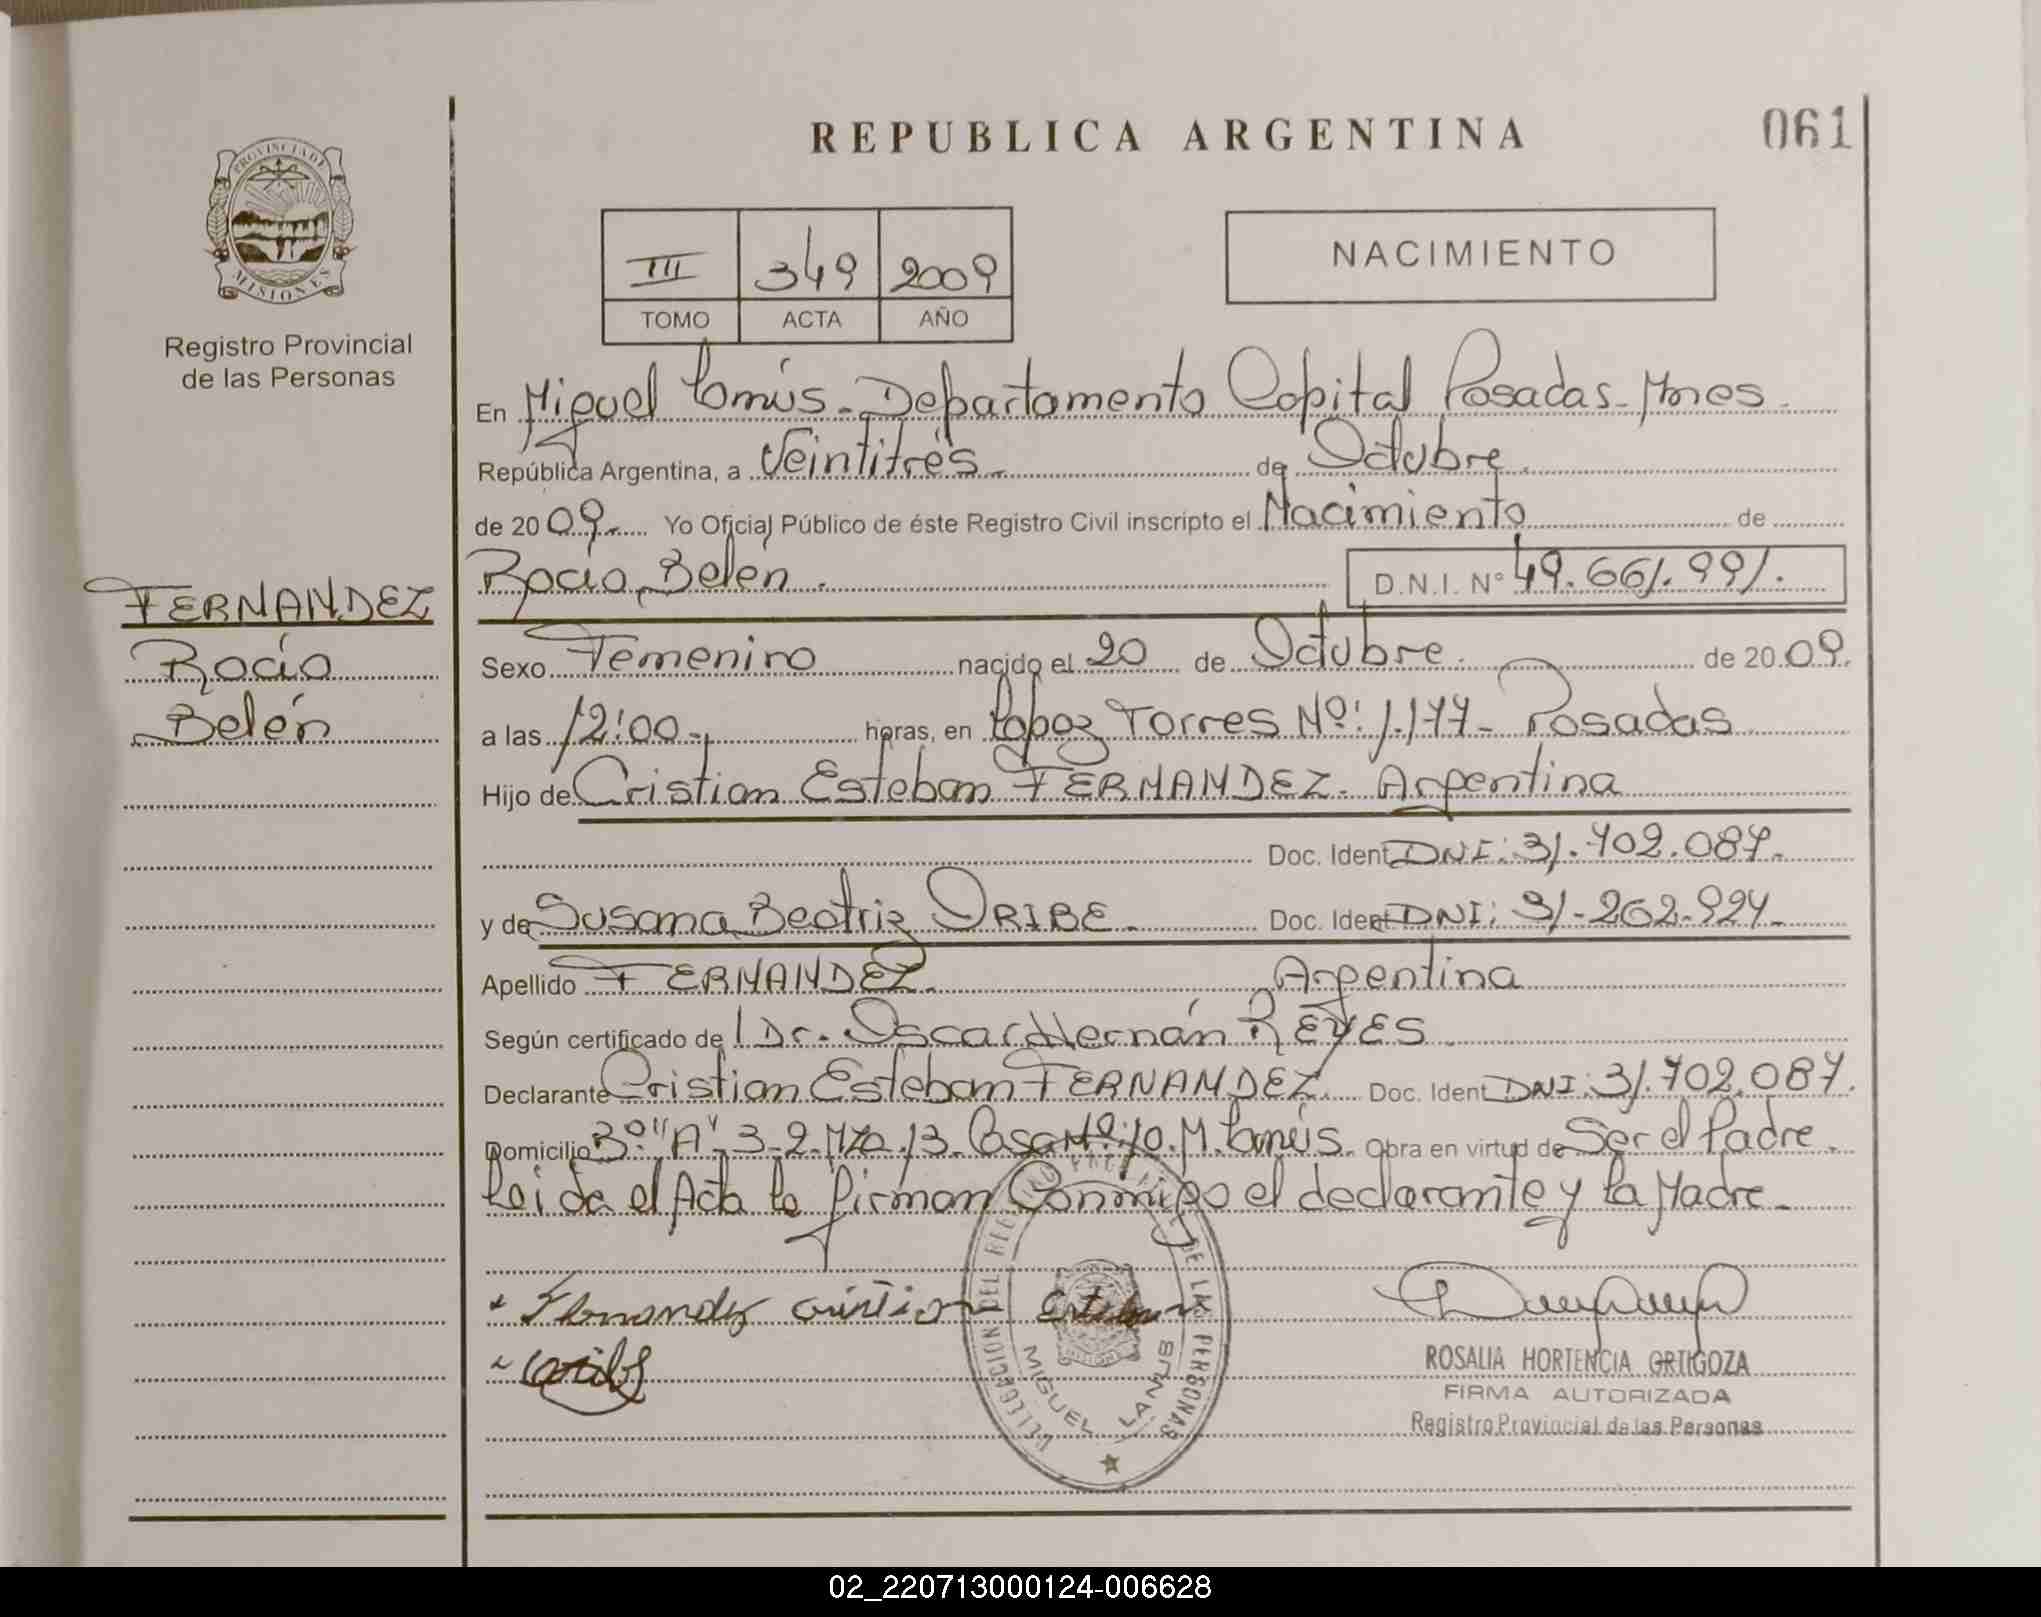 REPUBLICA ARGENTINA
061
PROVINCIA DE
MISIONES
Registro Provincial
de las Personas
III 349 2009
TOMO ACTA AÑO
NACIMIENTO
En Miguel Lanús - Departamento Capital Posadas - Mnes.
República Argentina, a Veintitrés de Octubre
de 2009. Yo Oficial Público de éste Registro Civil inscripto el Nacimiento de
Rocío Belén. D.N.I. Nº 49.661.991.
FERNANDEZ
Rocío
Belén
Sexo Femenino nacido el 20 de Octubre de 2009.
a las 12:00 horas, en López Torres Nº: 1.177 - Posadas
Hijo de Cristian Esteban FERNANDEZ. Argentina
Doc. Ident DNI: 31.702.087.
y de Susana Beatriz ORIBE. Doc. Ident DNI: 31-262-924-
Apellido FERNANDEZ. Argentina
Según certificado de Dr. Oscar Hernán REYES.
Declarante Cristian Esteban FERNANDEZ. Doc. Ident DNI: 31.702.087.
Domicilio 3º "A" 3-2. Mza. 13. Casa Nº: 10. M. Lanús. Obra en virtud de Ser el Padre.
Leída el Acta la firman Conmigo el declarante y la Madre.
Fernandez Cristian Esteban
DELEGACION DEL REGISTRO PROVINCIAL DE LAS PERSONAS
MIGUEL LANUS
ROSALIA HORTENCIA ORTIGOZA
FIRMA AUTORIZADA
Registro Provincial de las Personas
02_220713000124-006628